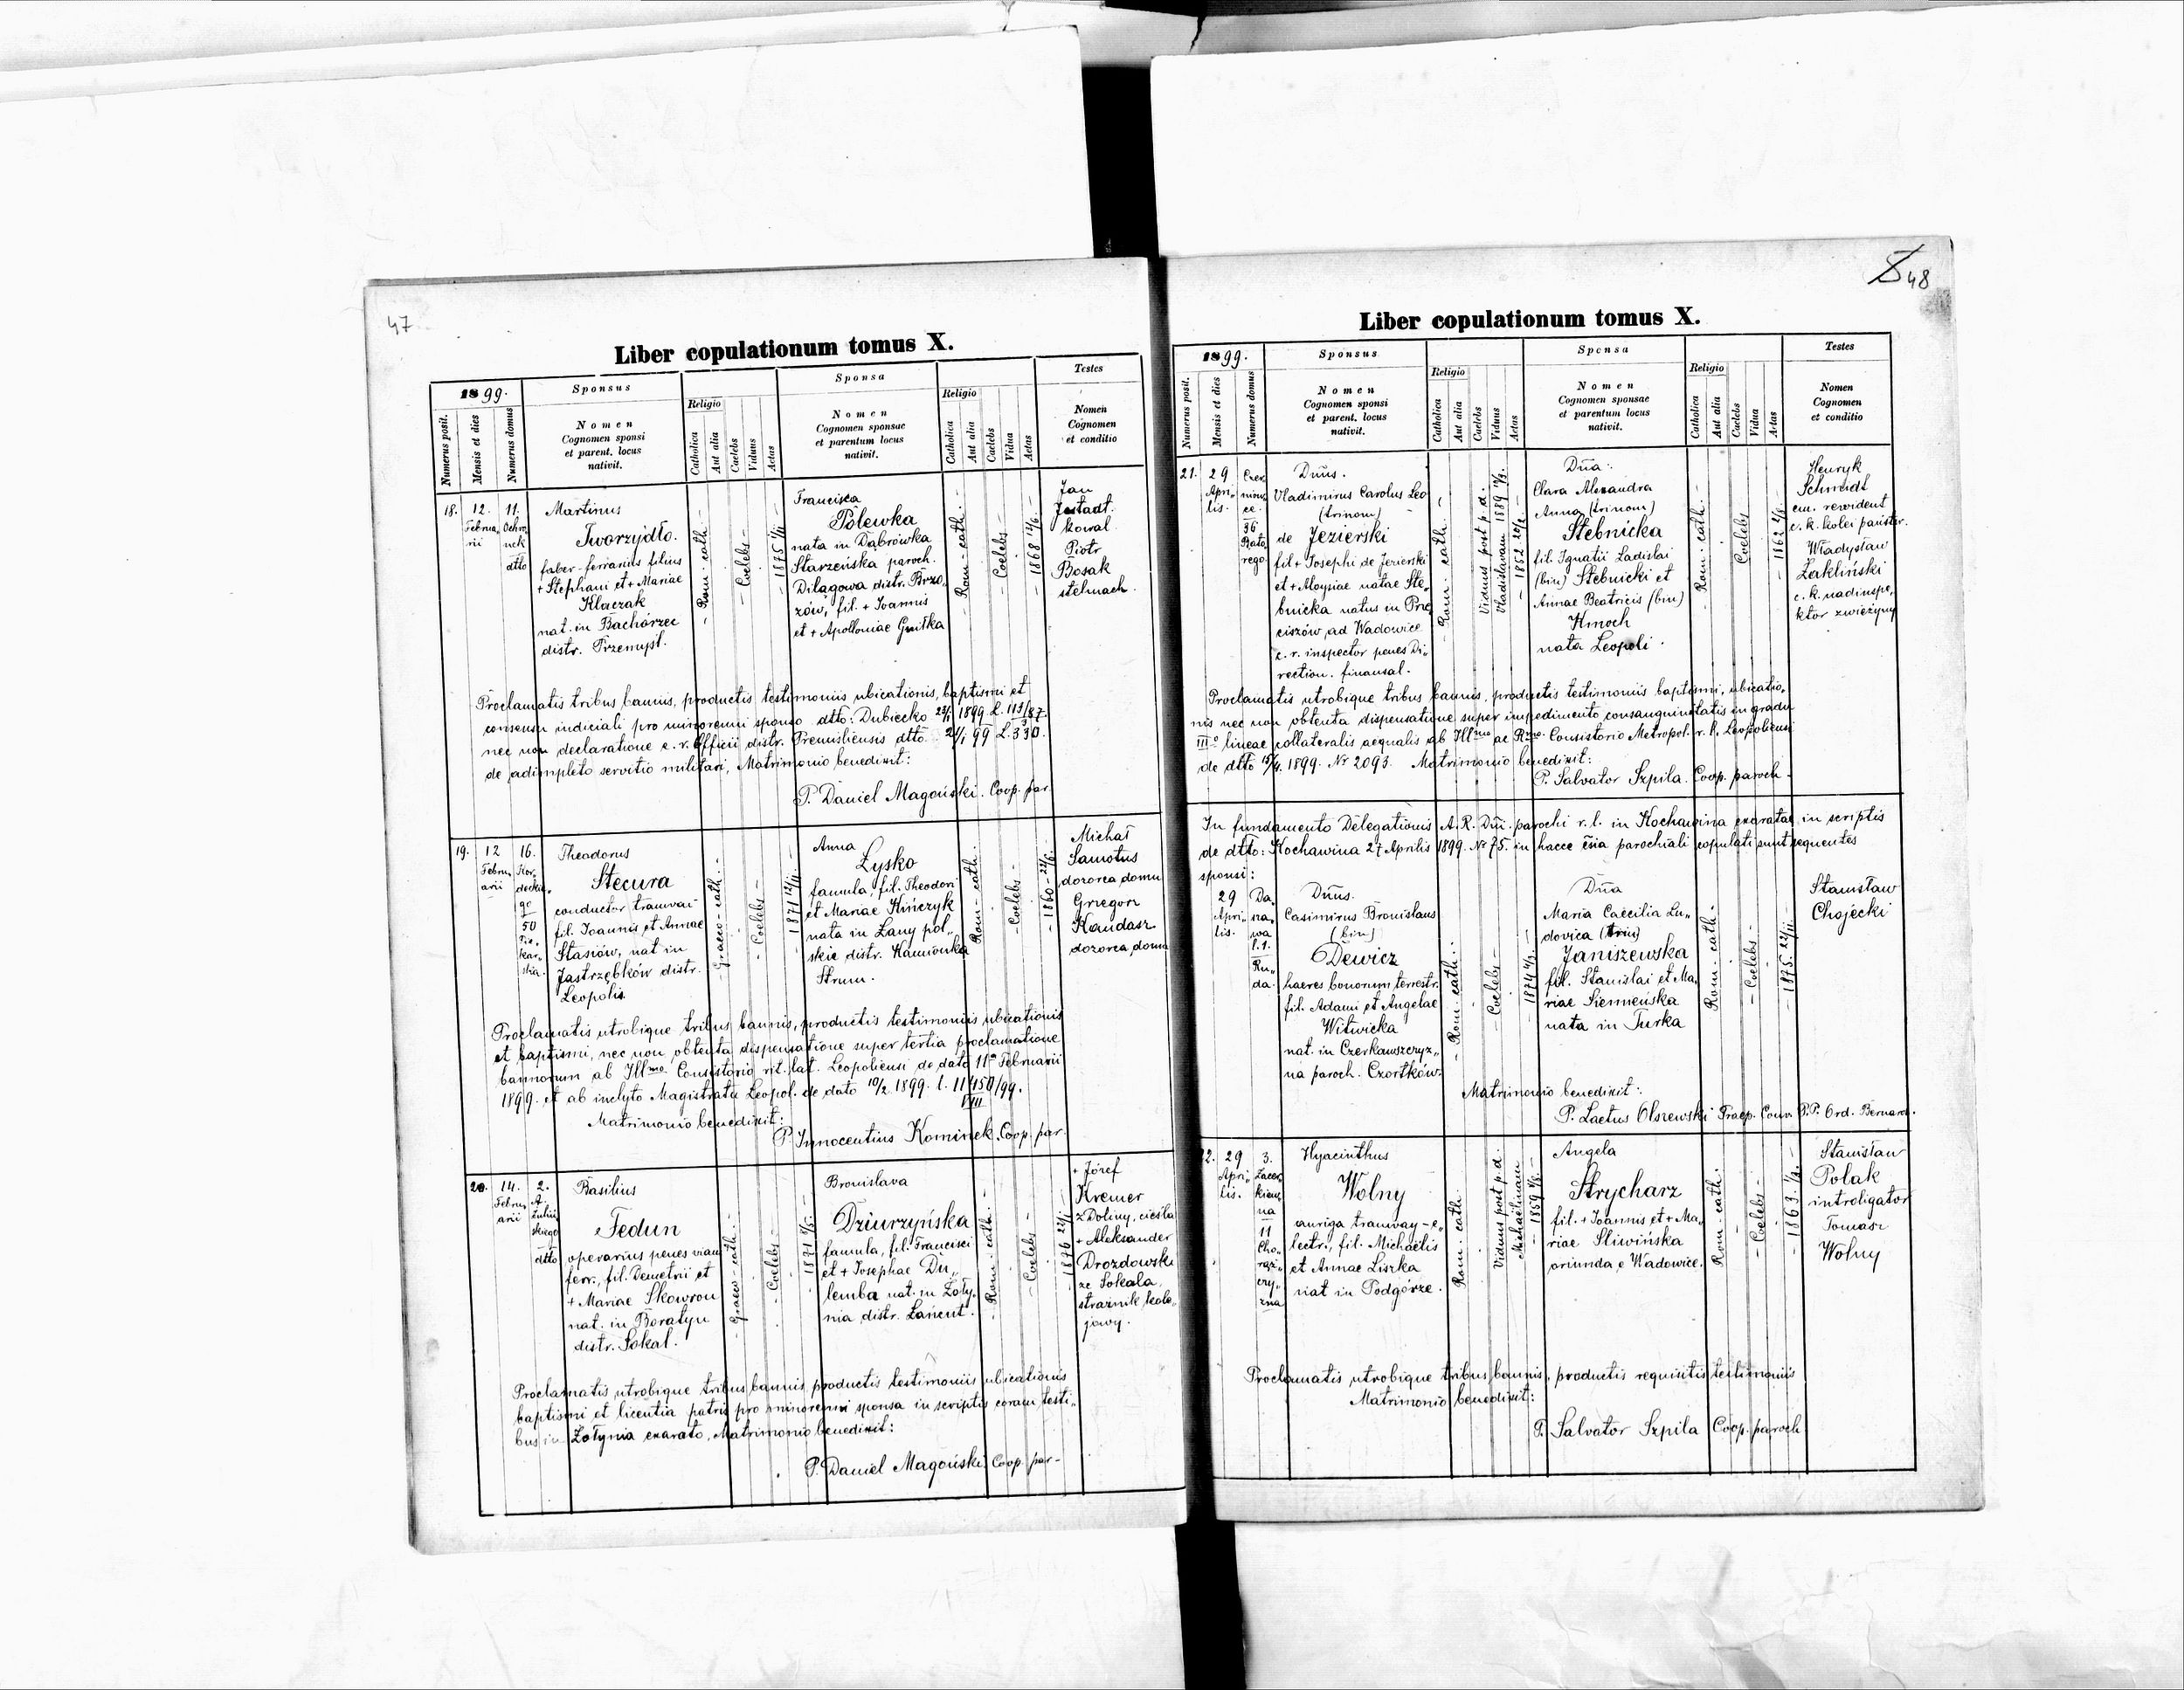 47
Liber copulationum tomus X.
1899.
Sponsus
Sponsa
Testes
Numerus posit.
Mensis et dies
Numerus domus
Nomen
Cognomen sponsi
et parent. locus
nativit.
Religio
Catholica
Aut alia
Caelebs
Viduus
Aetas
Nomen
Cognomen sponsae
et parentum locus
nativit.
Religio
Catholica
Aut alia
Caelebs
Vidua
Aetas
Nomen
Cognomen
et conditio
18.
12.
Februa„
rii
11.
Ochro„
nek
dtto
Martinus
Tworzydło.
faber-ferrarius filius
+ Stephani et + Mariae
Klaczak
nat. in Bachórzec
distr. Przemyśl.
- Rom-cath. -
- Coelebs -
Francisca
Polewka
nata in Dąbrówka
Starzeńska paroch.
Dilągowa distr. Brzo„
zów, fil. + Joannis
et + Apolloniae Gniłka
- Rom-cath. -
- Coelebs -
Jan
Jastadt.
kowal.
Piotr
Bosak
stelmach.
Proclamatis tribus bannis, productis testimoniis ubicationis, baptismi et
consensu iudiciali pro minorenni sponso dtto: Dubiecko 1899 L. 113/87
nec non declaratione c. r. Officii distr. Premisliensis dtto 99 L. 330.
de adimpleto servitio militari, Matrimonio benedixit:
P. Daniel Magoński. Coop. par.
19.
12
Febru„
arii
16.
50
Theodorus
Stecura
conductor tramvai
fil. Joannis et Annae
Stasiów, nat in
Jastrzębków distr.
Leopolis.
- Graeco-cath. -
- Coelebs -
Anna
Łysko
famula, fil. Theodori
et Mariae Kińczyk
nata in Łany pol„
skie distr. Kamionka
Strum.
Rom-cath.
- Coelebs -
Michał
Samotus
dozorca domu
Grzegorz
Kandasz
dozorca domu
Proclamatis utrobique tribus bannis, productis testimoniis ubicationis
et baptismi, nec non obtenta dispensatione super tertia proclamatione
bannorum ab Illmo Consistorio rit. lat. Leopoliensi de dato 11a Februarii
1899. et ab inclyto Magistratu Leopol. de dato 10/2 1899. l. 11450/99.
VIII
Matrimonio benedixit:
P. Innocentius Kominek. Coop. par.
20.
14.
Febru„
arii
2.
dtto
Basilius
Fedun
operarius penes viam
ferr., fil. Demetrii et
+ Mariae Skowron
nat. in Boratyn
distr. Sokal.
- Graeco-cath. -
- Coelebs -
Bronislava
Dziurzyńska
famula, fil. Francisci
et + Josephae Du„
lemba nat. in Żoły„
nia distr. Łańcut.
- Rom-cath. -
- Coelebs -
+ Józef
Kremer
z Doliny, cieśla
+ Aleksander
Drozdowski
ze Sokala,
strażnik kole„
jowy.
Proclamatis utrobique tribus bannis productis testimoniis ubicationis
baptismi et licentia patris pro minorenni sponsa in scriptis coram testi„
bus in Żołynia exarato, Matrimonio benedixit:
P. Daniel Magoński Coop. par-
48
Liber copulationum tomus X.
1899.
Sponsus
Sponsa
Testes
Numerus posit.
Mensis et dies
Numerus domus
Nomen
Cognomen sponsi
et parent. locus
nativit.
Religio
Catholica
Aut alia
Caelebs
Viduus
Aetas
Nomen
Cognomen sponsae
et parentum locus
nativit.
Religio
Catholica
Aut alia
Caelebs
Vidua
Aetas
Nomen
Cognomen
et conditio
21.
29
Apri„
lis.
36
Bato„
rego.
Dnus.
Vladimirus Carolus Leo
(trinom)
de Jezierski
fil + Josephi de Jezierski
et + Aloysiae natae Ste„
bnicka natus in Prze
ciszów, ad Wadowice
c. r. inspector penes Di„
rection. finansal.
- Rom-cath. -
Viduus post p. d.
Vladislavam 1889
Dna.
Clara Alexandra
Anna (trinom)
Stebnicka
fil. Ignatii Ladislai
(bin) Stebnicki et
Annae Beatricis (bin)
Hmoch
nata Leopoli.
- Rom-cath. -
Coelebs
Henryk
Schmidt
em. rewident
c. k. kolei państw.
Władysław
Żakliński
c. k. nadinspe„
ktor zwierzyny
Proclamatis utrobique tribus bannis, productis testimoniis baptismi, ubicatio„
nis nec non obtenta dispensatione super impedimento consanguinitatis in gradu
IIIo lineae collateralis aequalis ab Illmo ac Rmo Consistorio Metropol. r. l. Leopoliensi
de dtto 15/4. 1899. Nr 2093. Matrimonio benedixit:
P. Salvator Szpila. Coop. paroch.
In fundamento Delegationis A. R. Dni parochi r. l. in Kochawina exaratae in scriptis
de dtto: Kochawina 27 Aprilis 1899. Nr 75. in hacce ecsia parochiali copulati sunt sequentes
sponsi:
29
Apri„
lis.
Da„
ra„
wa
l. 1.
Ru„
da.
Dnus.
Casimirus Bronislaus
(bin)
Dewicz
haeres bonorum terrestr.
fil. Adami et Angelae
Witwicka
nat. in Czerkawszczyz„
na paroch. Czortków.
- Rom-cath. -
- Coelebs -
Dna
Maria Caecilia Lu„
dovica (trin)
Janiszewska
fil. Stanislai et Ma„
riae Siemieńska
nata in Turka
Rom-cath -
- Coelebs -
Stanisław
Chojecki
Matrimonio benedixit:
P. Laetus Olszewski Praep. Conv. P.P. Ord. Bernard.
22.
29
Apri„
lis.
3.
11
Cho„
rąż„
czy„
zna
Hyacinthus
Wolny
auriga tramway-e„
lectr., fil. Michaelis
et Annae Liszka
nat in Podgórze.
Rom-cath.
Viduus post p. d.
Angela
Strycharz
fil. + Joannis et + Ma„
riae Śliwińska
oriunda e Wadowice.
Rom-cath.
- Coelebs -
Stanisław
Polak
introligator
Tomasz
Wolny
Proclamatis utrobique tribus bannis, productis requisitis testimoniis
Matrimonio benedixit:
P. Salvator Szpila Coop. paroch.